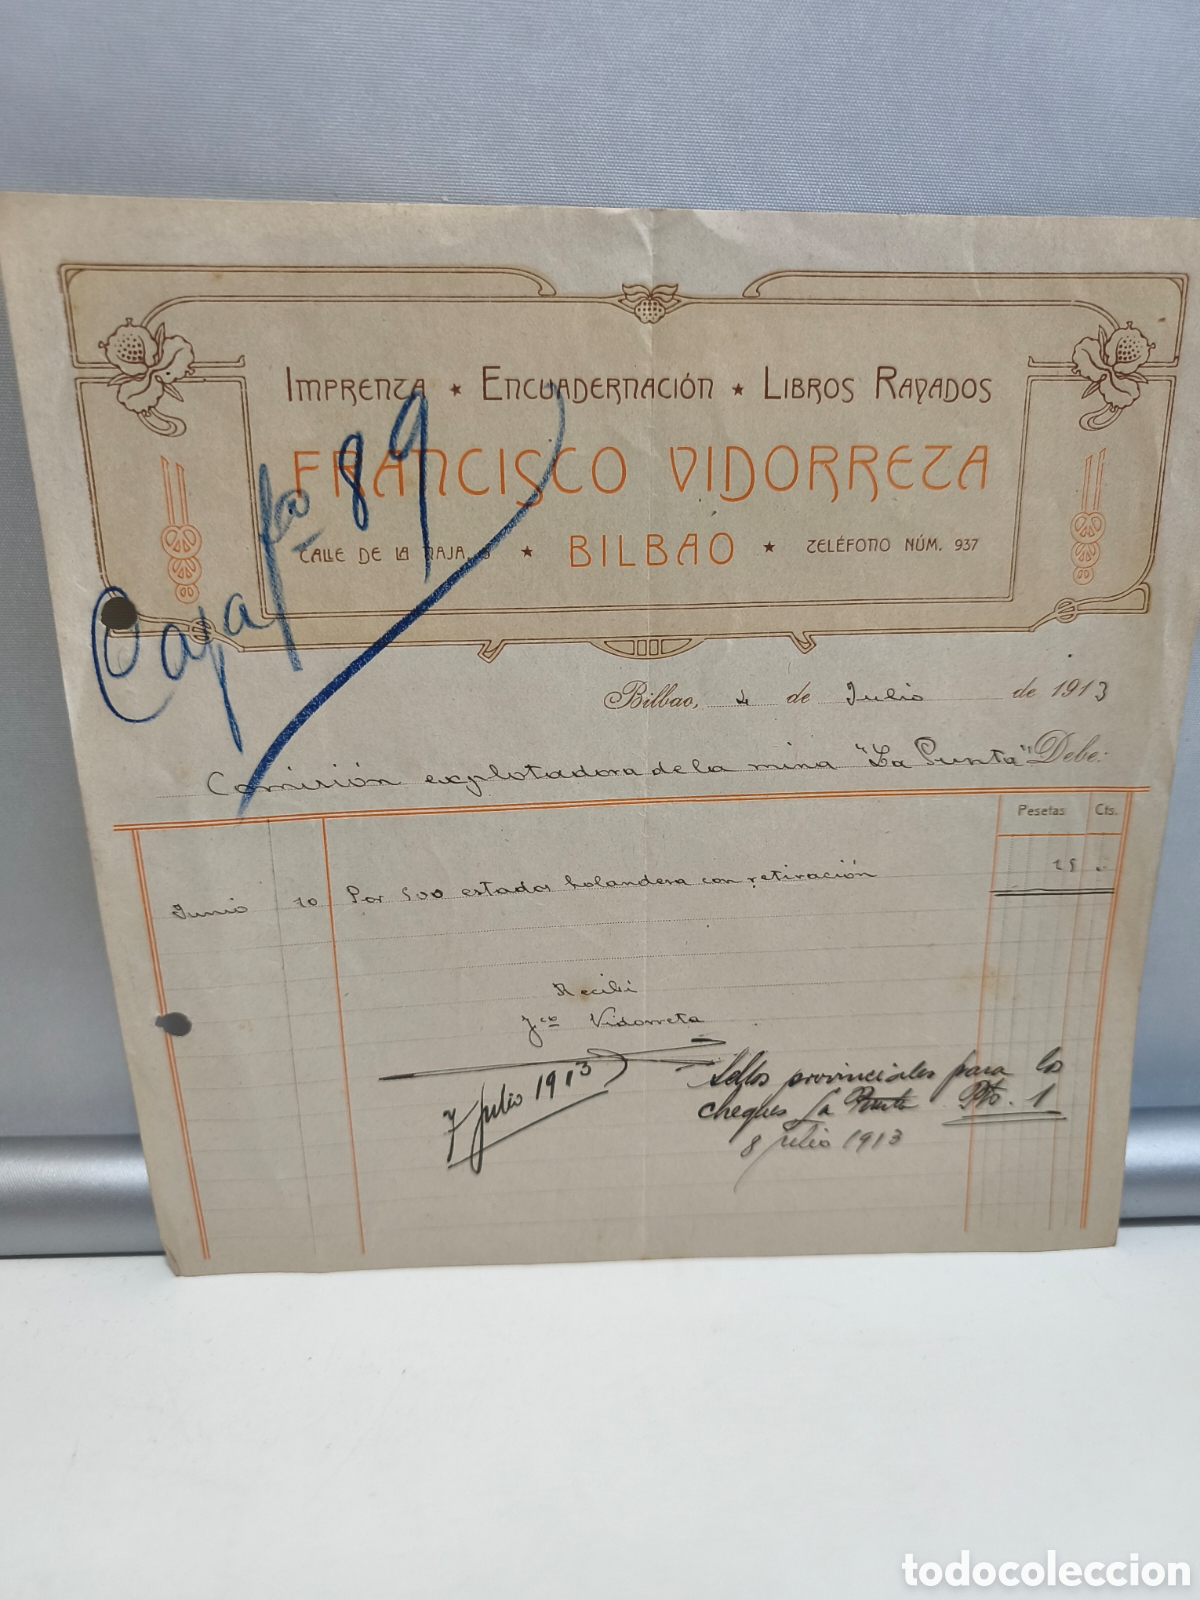 IMPRENTA ★ ENCUADERNACIÓN ★ LIBROS RAYADOS
FRANCISCO VIDORRETA
CALLE DE LA NAJA, ★ BILBAO ★ TELÉFONO NÚM. 937
Caja fo 89
Bilbao, 4 de Julio de 1913
Comisión explotadora de la mina "La Punta" Debe:
Pesetas Cts.
Junio 10 Por 500 estados holandesa con retiración 25
Recibí
Fco Vidorreta
7 Julio 1913
Sellos provinciales para los
cheques La Punta Pts. 1
8 Julio 1913
todocoleccion